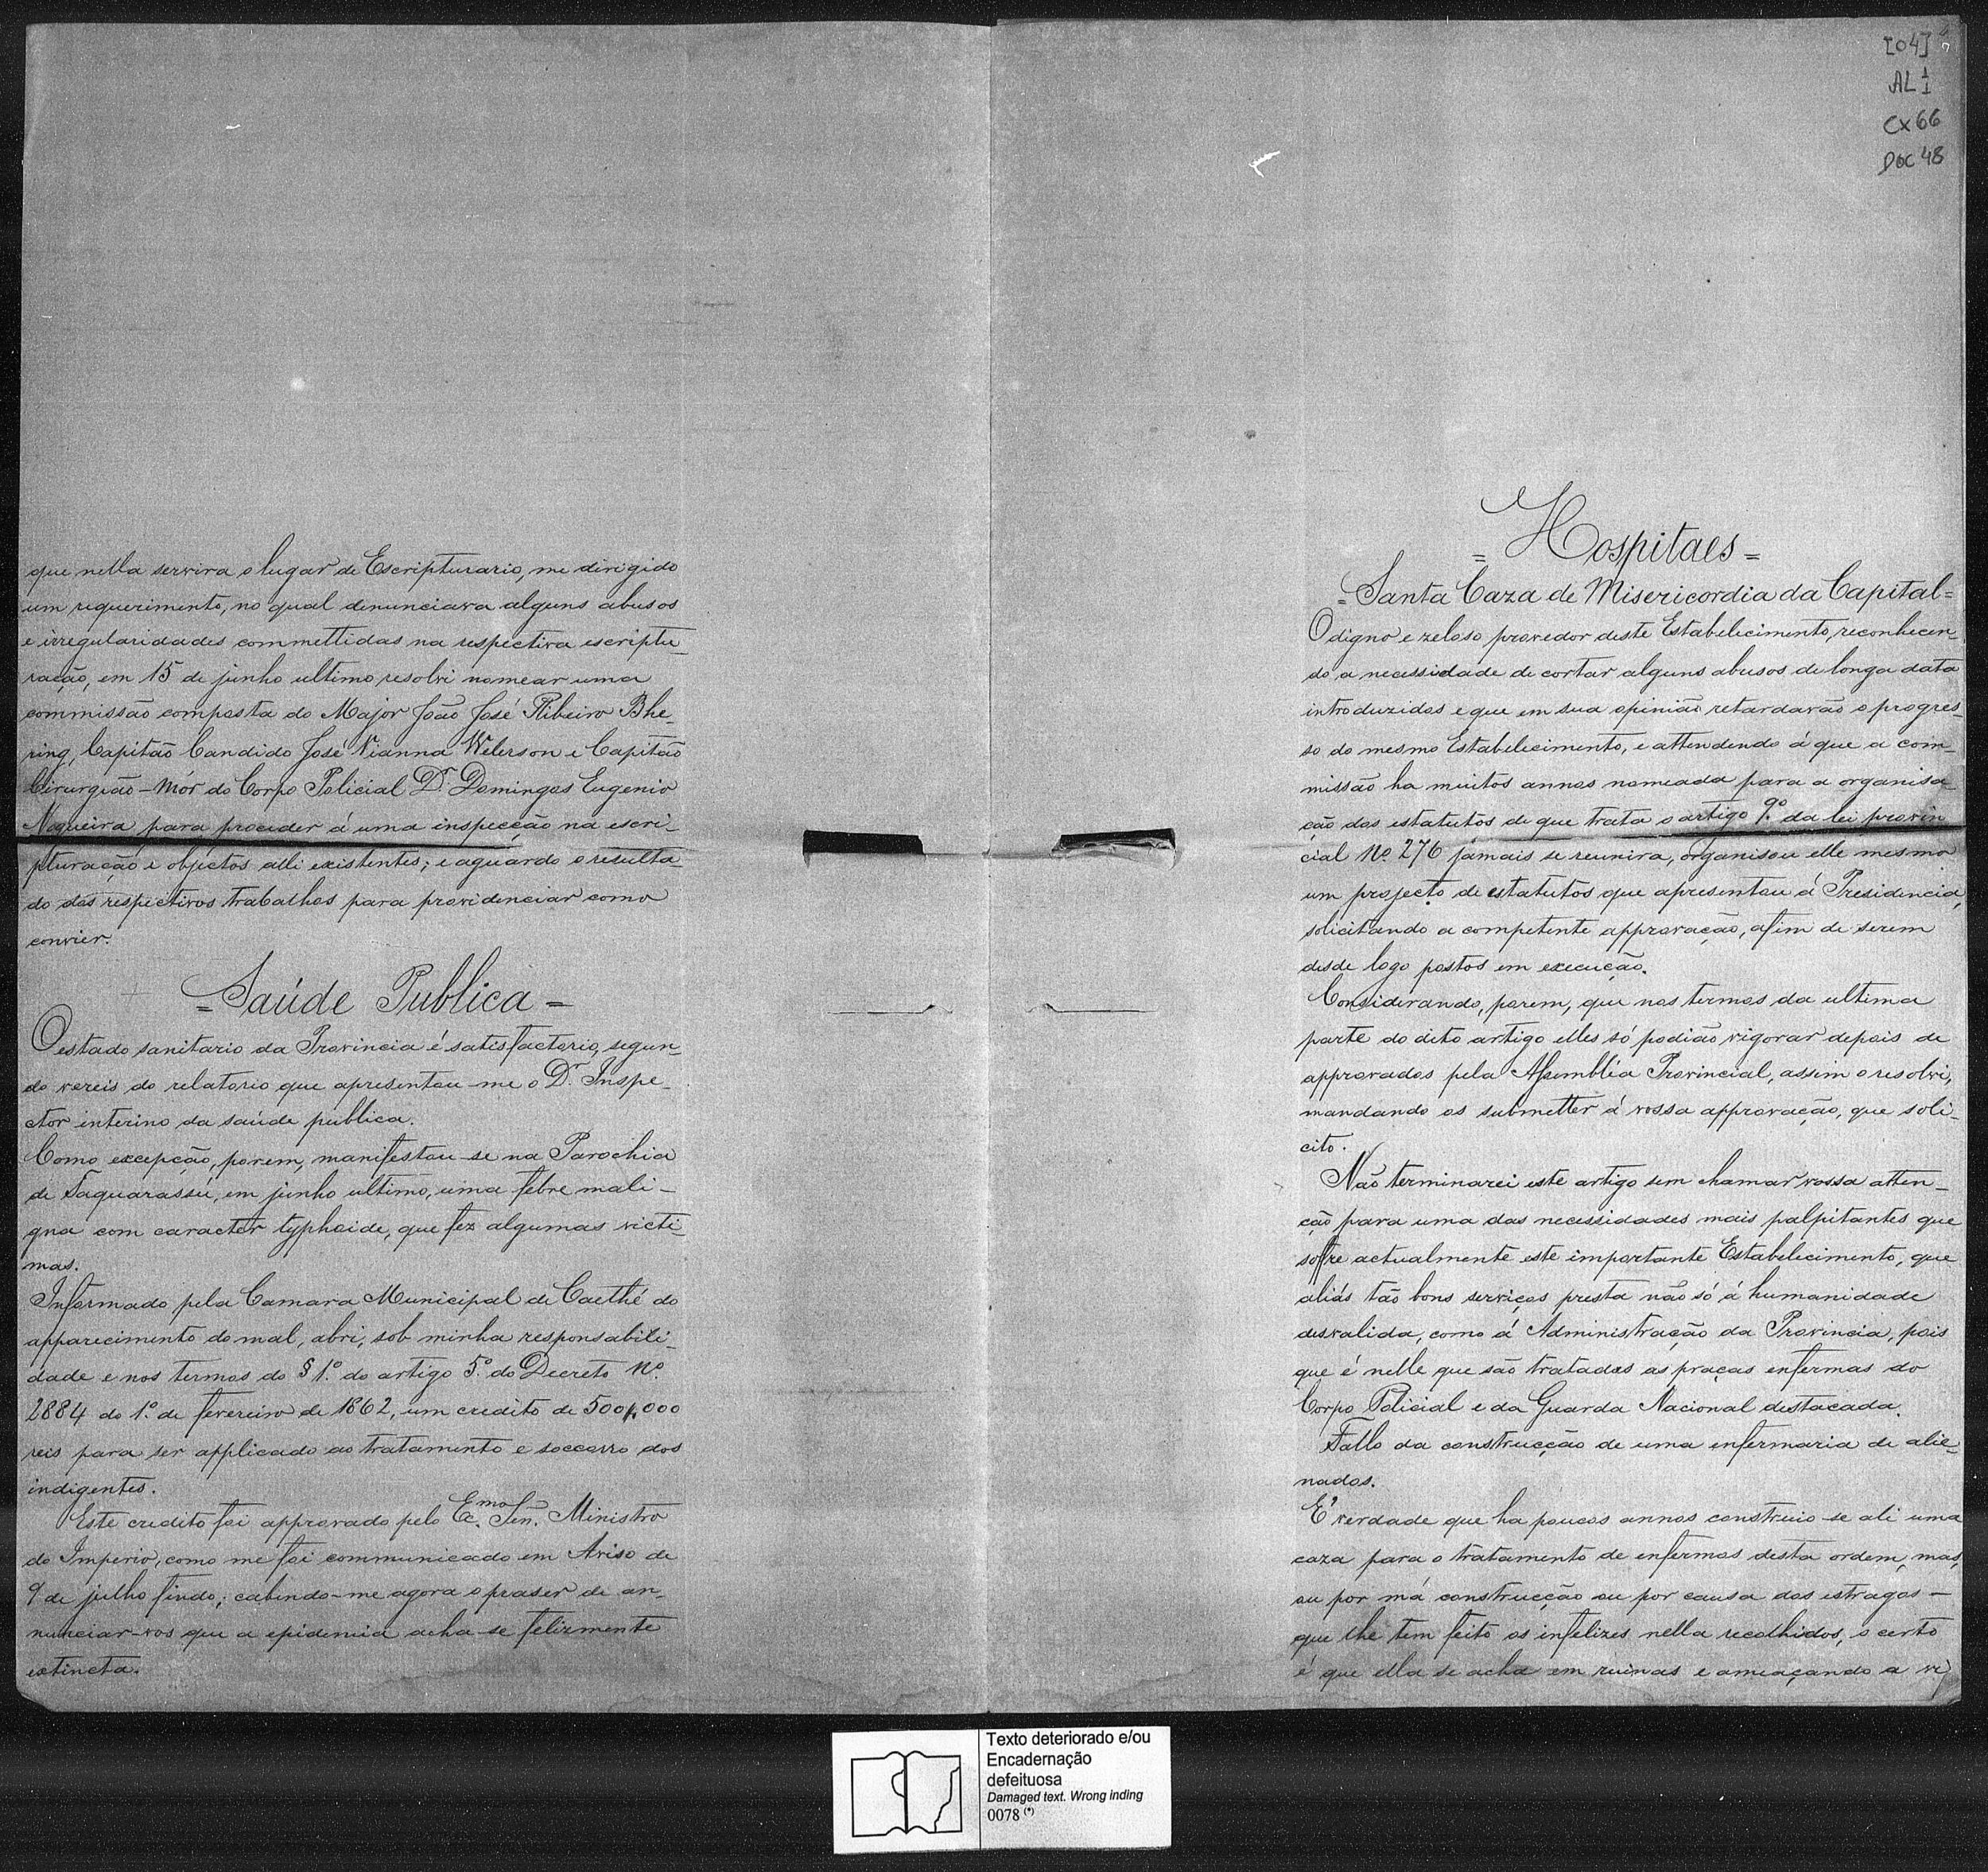 que nella servira o lugar de Escripturario, me dirigido
um requerimento, no qual denunciava alguns abusos
e irregularidades commettidas na respectiva escriptu_
ração, em 15 de junho ultimo, resolvi nomear uma
commissão composta do Major João José Ribeiro Bhe_
ring, Capitão Candido José Vianna Welerson e Capitão
Cirurgião-Mór do Corpo Policial Dr. Domingos Eugenio
Nogueira para proceder á uma inspecção na escri_
pturação e objectos alli existentes; e aguardo o resulta
do dos respectivos trabalhos para providenciar como
convier.
=Saúde Publica=
O estado sanitario da Provincia é satisfactorio, segun_
do vereis do relatorio que apresentou-me o Dr. Inspe_
ctor interino da saúde publica.
Como excepção, porem, manifestou-se na Parochia
de Taquarassú, em junho ultimo, uma febre mali_
gna com caracter typhoide, que fez algumas victi_
mas.
Informado pela Camara Municipal de Caethé do
apparecimento do mal, abri, sob minha responsabili_
dade e nos termos do § 1º. do artigo 5º. do Decreto Nº.
2884 do 1º. de fevereiro de 1862, um credito de 500$000
reis para ser applicado ao tratamento e soccorro dos
indigentes.
Este credito foi approvado pelo Exmo. Sen. Ministro
do Imperio, como me foi communicado em Aviso de
9 de julho findo; cabendo-me agora o praser de an_
nunciar-vos que a epidemia acha-se felizmente
extincta.
[04]
AL 1
CX 66
DOC 48
=Hospitaes=
=Santa Caza de Misericordia da Capital=
O digno e zeloso provedor deste Estabelecimento, reconhecen_
do a necessidade de cortar alguns abusos de longa data
introduzidos e que em sua opinião retardavão o progres_
so do mesmo Estabelecimento, e attendendo á que a com_
missão ha muitos annos nomeada para a organisa_
ção dos estatutos de que trata o artigo 9º. da lei provin
cial Nº 276 jamais se reunira, organisou elle mesmo
um projecto de estatutos que apresentou á Presidencia,
solicitando a competente approvação, afim de serem
desde logo postos em execução.
Considerando, porem, que nos termos da ultima
parte do dito artigo elles só podião vigorar depois de
approvados pela Assembléa Provincial, assim o resolvi,
mandando os submetter á vossa approvação, que soli_
cito.
Não terminarei este artigo sem chamar vossa atten_
ção para uma das necessidades mais palpitantes que
soffre actualmente este importante Estabelecimento, que
aliás tão bons serviços presta não só á humanidade
desvalida, como á Administração da Provincia, pois
que é nelle que são tratadas as praças enfermas do
Corpo Policial e da Guarda Nacional destacada.
Fallo da construcção de uma enfermaria de alie_
nados.
E' verdade que ha poucos annos construio-se ali uma
caza para o tratamento de enfermos desta ordem, mas,
ou por má construcção ou por causa dos estragos-
que lhe tem feito os infelizes nella recolhidos, o certo
é que ella se acha em ruinas e ameaçando a vi
Texto deteriorado e/ou
Encadernação
defeituosa
Damaged text. Wrong inding
0078 (*)